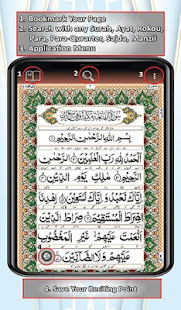 1. Bookmark Your Page
2. Search with any Surah, Ayat, Rokou,
Para, Para-Qurarter, Sajda, Manzil
3. Application Menu
1
2
3
بِسْمِ اللهِ الرَّحْمٰنِ الرَّحِيْمِ
اَلْحَمْدُ لِلّٰهِ رَبِّ الْعٰلَمِيْنَ الرَّحْمٰنِ
الرَّحِيْمِ مٰلِكِ يَوْمِ الدِّيْنِ
اِيَّاكَ نَعْبُدُ وَاِيَّاكَ نَسْتَعِيْنُ اِهْدِنَا
الصِّرَاطَ الْمُسْتَقِيْمَ صِرَاطَ الَّذِيْنَ
اَنْعَمْتَ عَلَيْهِمْ غَيْرِ الْمَغْضُوْبِ
عَلَيْهِمْ وَلَا الضَّآلِّيْنَ
4. Save Your Reciting Point